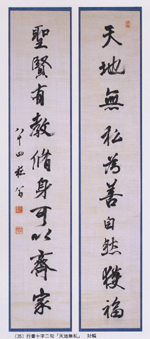 天地無私為善自然獲福
聖賢有教脩身可以齊家
八十四松翁
(35) 行書十字二句「天地無私」 対幅